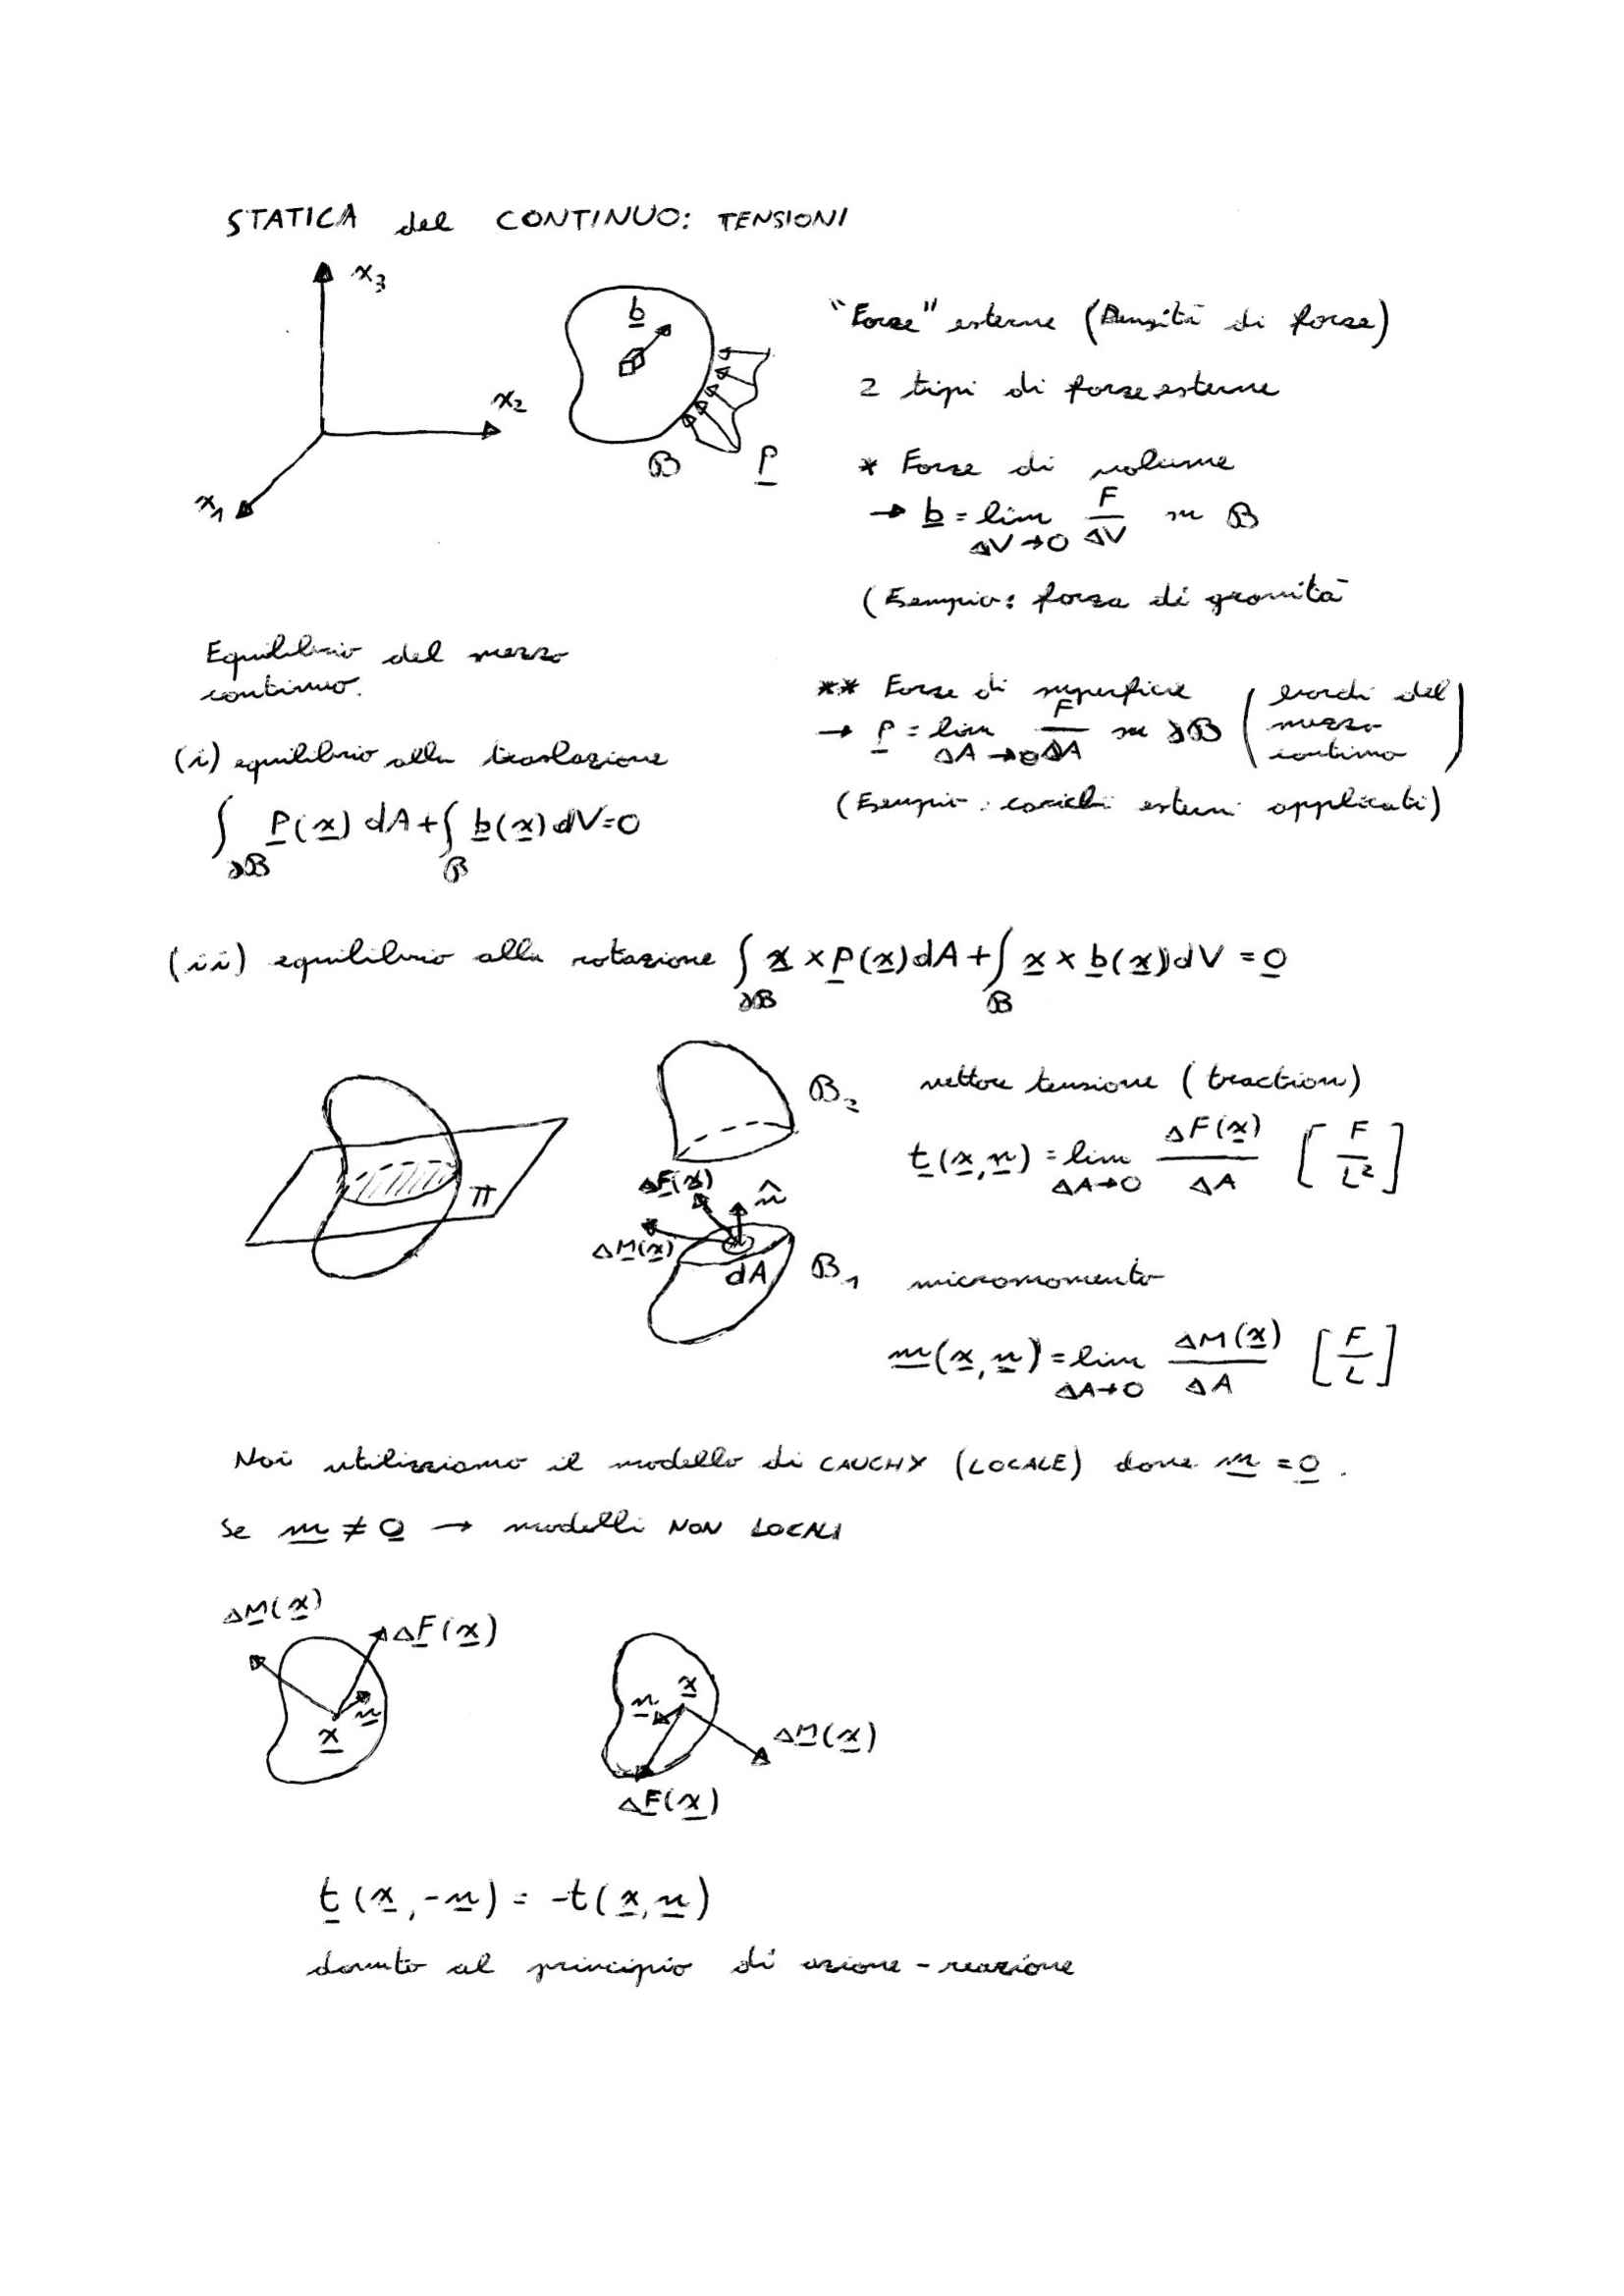 STATICA del CONTINUO: TENSIONI
x₃
x₂
x₁
b
B
p
"Forze" esterne (Densità di forze)
2 tipi di forze esterne
* Forze di volume
→ b = lim ΔV→0 F/ΔV su B
(Esempio: forza di gravità
Equilibrio del mezzo
continuo.
** Forze di superficie
→ p = lim ΔA→0 F/ΔA su ∂B (bordi del
mezzo
continuo)
(Esempio: carichi esterni applicati)
(i) equilibrio alla traslazione
∫∂B p(x) dA + ∫B b(x) dV = 0
(ii) equilibrio alla rotazione ∫∂B x × p(x) dA + ∫B x × b(x) dV = 0
π
B₂
ΔF(x)
n̂
ΔM(x)
dA
B₁
vettore tensione (traction)
t(x,n) = lim ΔA→0 ΔF(x)/ΔA [F/L²]
micromomento
m(x,n) = lim ΔA→0 ΔM(x)/ΔA [F/L]
Noi utilizziamo il modello di CAUCHY (LOCALE) dove m = 0.
Se m ≠ 0 → modelli NON LOCALI
ΔM(x)
ΔF(x)
n
x
x
n
ΔM(x)
ΔF(x)
t(x,-n) = -t(x,n)
dovuto al principio di azione-reazione